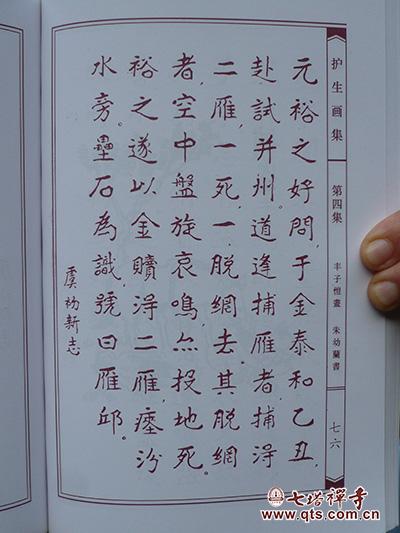 元裕之好問,于金泰和乙丑,
赴試并州。道逢捕雁者,捕得
二雁,一死,一脱網去。其脱網
者,空中盤旋哀鳴,亦投地死。
裕之遂以金贖得二雁,瘞汾
水旁。壘石為識,號曰雁邱。
虞初新志
护生画集
第四集
丰子恺畫 朱幼蘭書
七六
七塔禪寺
www.qts.com.cn